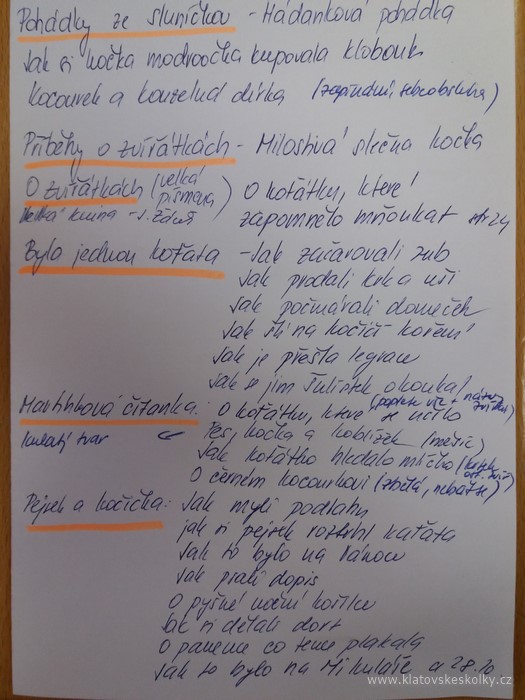 Pohádky ze sluníčkov - Hádanková pohádka
Jak si kočka modroočka kupovala klobouk
Kocourek a kouzelná dírka (zapínání, sebeobsluha)
Příběhy o zvířátkách - Milostivá slečna kočka
O zvířátkách (velká písmena) O koťátku, které
Velká kniha - J. Žáček zapomnělo mňoukat str 24
Byla jednou koťata - Jak začarovali zub
Jak prodali krka uši
Jak počmárali domeček
Jak šli na kočičí koření
Jak je přešla legrace
Jak se jim Šulínek okoukal
Martínkova čítanka: O koťátku, které se učilo
kulatý tvar Pes, kočka a koblížek (míčic)
Jak koťátko hledalo mlíčko
O černém kocourkovi
Pejsek a kočička: Jak myli podlahu
jak si pejsek roztrhl kaťata
Jak to bylo na Vánoce
Jak psali dopis
O pyšné noční košilce
Jak si dělali dort
O panence co tence plakala
Jak to bylo na Mikuláše a 28.10
www.klatovskeskolky.cz